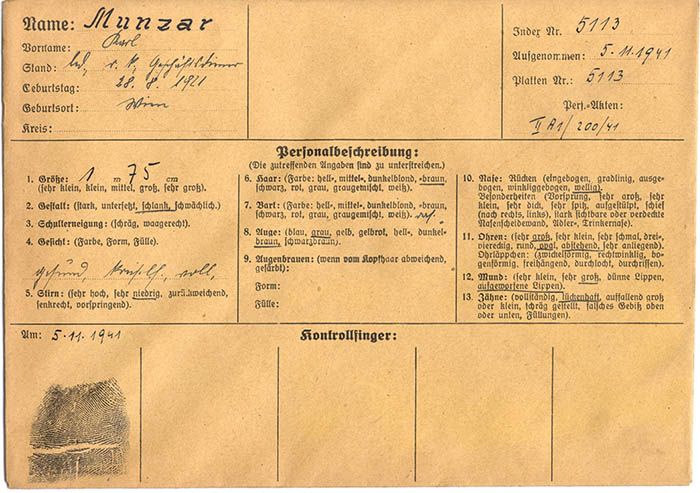 Name: Munzar
Vorname: Karl
Stand: led, r. k, Geschäftsdiener
Geburtstag: 28. 8. 1921
Geburtsort: Wien
Kreis:
Index Nr. 5113
Aufgenommen: 5.11.1941
Platten Nr.: 5113
Pers.-Akten:
II A1/200/41
Personalbeschreibung:
(Die zutreffenden Angaben sind zu unterstreichen.)
1. Größe: 1 m 75 cm
(sehr klein, klein, mittel, groß, sehr groß).
2. Gestalt: (stark, untersetzt, schlank, schwächlich).
3. Schulterneigung: (schräg, waagerecht).
4. Gesicht: (Farbe, Form, Fülle).
gesund, voll,
5. Stirn: (sehr hoch, sehr niedrig, zurückweichend,
senkrecht, vorspringend).
6. Haar: (Farbe: hell-, mittel-, dunkelblond, -braun,
schwarz, rot, grau, graugemischt, weiß).
7. Bart: (Farbe: hell-, mittel-, dunkelblond, -braun,
schwarz, rot, grau, graugemischt, weiß).
8. Auge: (blau, grau, gelb, gelbrot, hell-, dunkel-
braun, schwarzbraun).
9. Augenbrauen: (wenn vom Kopfhaar abweichend,
gefärbt):
Form:
Fülle:
10. Nase: Rücken (eingebogen, gradlinig, ausge-
bogen, winkliggebogen, wellig).
Besonderheiten (Vorsprung, sehr groß, sehr
klein, sehr dick, sehr spitz, aufgestülpt, schief
(nach rechts, links), stark sichtbare oder verdeckte
Nasenscheidewand, Adler-, Trinkernase).
11. Ohren: (sehr groß, sehr klein, sehr schmal, drei-,
viereckig, rund, oval, abstehend, sehr anliegend).
Ohrläppchen: (zwickelförmig, rechtwinklig, bo-
genförmig, freihängend, durchlocht, durchrissen).
12. Mund: (sehr klein, sehr groß, dünne Lippen,
aufgeworfene Lippen).
13. Zähne: (vollständig, lückenhaft, auffallend groß
oder klein, schräg gestellt, falsches Gebiß oben
oder unten, Füllungen).
Am: 5.11.1941
Kontrollfinger: